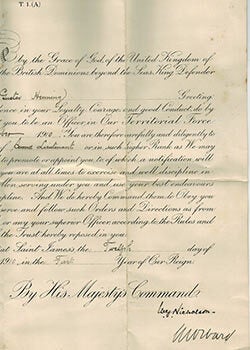 T. 1. (A)
by the Grace of God, of the United Kingdom of
the British Dominions beyond the Seas, King, Defender
Greeting:
ence in your Loyalty, Courage, and good Conduct, do by
you to be an Officer in Our Territorial Force
1910. You are therefore carefully and diligently to
of Second Lieutenant or in such higher Rank as We may
to promote or appoint you to, of which a notification will
you are at all times to exercise and well discipline in
Men serving under you and use your best endeavours
pline. And We do hereby Command them to Obey you
serve and follow such Orders and Directions as from
or any your superior Officer, according to the Rules and
the Trust hereby reposed in you.
at Saint James's, the day of
1910, in the First Year of Our Reign.
By His Majesty's Command.